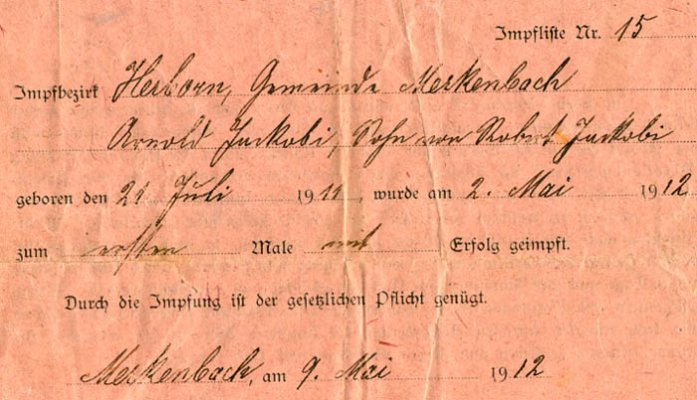 Impfliste Nr. 15
Impfbezirk Herborn, Gemeinde Merkenbach
Arnold Jackobi, Sohn von Robert Jackobi
geboren den 21 Juli 1911, wurde am 2. Mai 1912
zum ersten Male mit Erfolg geimpft.
Durch die Impfung ist der gesetzlichen Pflicht genügt.
Merkenbach, am 9. Mai 1912